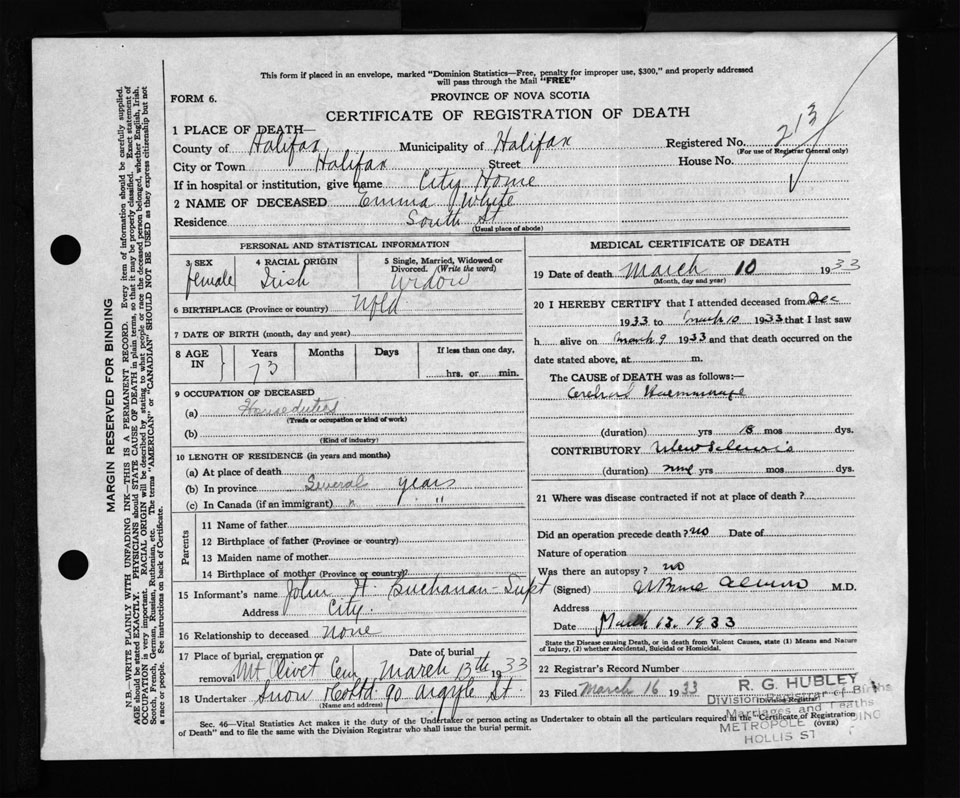 This form if placed in an envelope, marked "Dominion Statistics—Free, penalty for improper use, $300," and properly addressed
will pass through the Mail "FREE"
FORM 6.
PROVINCE OF NOVA SCOTIA
CERTIFICATE OF REGISTRATION OF DEATH
1 PLACE OF DEATH—
County of Halifax Municipality of Halifax Registered No. 213
(For use of Registrar General only)
City or Town Halifax Street House No.
If in hospital or institution, give name City Home
2 NAME OF DECEASED Emma J White
Residence South St
(Usual place of abode)
PERSONAL AND STATISTICAL INFORMATION
3 SEX 4 RACIAL ORIGIN 5 Single, Married, Widowed or
Divorced. (Write the word)
female Irish Widow
6 BIRTHPLACE (Province or country) Nfld
7 DATE OF BIRTH (month, day and year)
8 AGE IN Years Months Days If less than one day,
73 hrs. or min.
9 OCCUPATION OF DECEASED
(a) House duties
(Trade or occupation or kind of work)
(b)
(Kind of industry)
10 LENGTH OF RESIDENCE (in years and months)
(a) At place of death
(b) In province Several years
(c) In Canada (if an immigrant) " "
Parents
11 Name of father
12 Birthplace of father (Province or country)
13 Maiden name of mother
14 Birthplace of mother (Province or country)?
15 Informant's name John H. Buchanan - Supt
Address City.
16 Relationship to deceased None
17 Place of burial, cremation or removal Mt Olivet Cem Date of burial March 13th 1933
18 Undertaker Snow & Co Ltd. 90 Argyle St.
(Name and address)
MEDICAL CERTIFICATE OF DEATH
19 Date of death March 10 1933
(Month, day and year)
20 I HEREBY CERTIFY that I attended deceased from Dec
1933 to March 10 1933 that I last saw
h alive on March 9 1933 and that death occurred on the
date stated above, at m.
The CAUSE of DEATH was as follows:—
Cerebral Haemmorage
(duration) yrs mos dys.
CONTRIBUTORY
(duration) yrs mos dys.
21 Where was disease contracted if not at place of death?
Did an operation precede death? no Date of
Nature of operation
Was there an autopsy? no
(Signed) M.D.
Address
Date March 13, 1933
State the Disease causing Death, or in death from Violent Causes, state (1) Means and Nature
of Injury, (2) whether Accidental, Suicidal or Homicidal.
22 Registrar's Record Number
23 Filed March 16 1933
(Division Registrar)
R. G. HUBLEY
Division Registrar of Births
Marriages and Deaths
METROPOLE BUILDING
HOLLIS ST
Sec. 46—Vital Statistics Act makes it the duty of the Undertaker or person acting as Undertaker to obtain all the particulars required in the "Certificate of Registration
of Death" and to file the same with the Division Registrar who shall issue the burial permit.
(OVER)
MARGIN RESERVED FOR BINDING
N.B.—WRITE PLAINLY WITH UNFADING INK—THIS IS A PERMANENT RECORD. Every item of information should be carefully supplied.
AGE should be stated EXACTLY. PHYSICIANS should STATE CAUSE OF DEATH in plain terms, so that it may be properly classified. Exact statement of
OCCUPATION is very important. RACIAL ORIGIN will be described by stating to what people or race the deceased person belonged, whether English, Irish,
Scotch, French, German, Russian, Ruthenian, etc. The terms "AMERICAN" or "CANADIAN" SHOULD NOT BE USED as they express citizenship but not
a race or people. See instructions on back of Certificate.